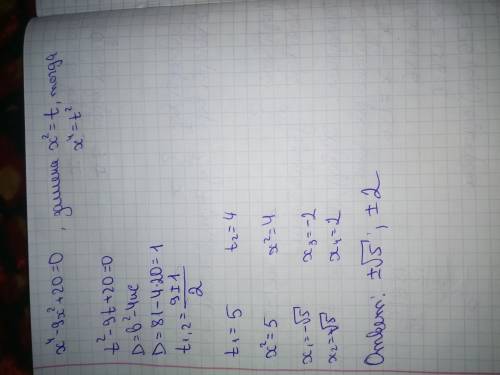 x⁴-9x²+20=0, замена x²=t, тогда
x⁴=t²
t²-9t+20=0
D=b²-4ac
D=81-4·20=1
t₁,₂=(9±1)/2
t₁=5 t₂=4
x²=5 x²=4
x₁=-√5 x₃=-2
x₂=√5 x₄=2
Ответ: ±√5; ±2